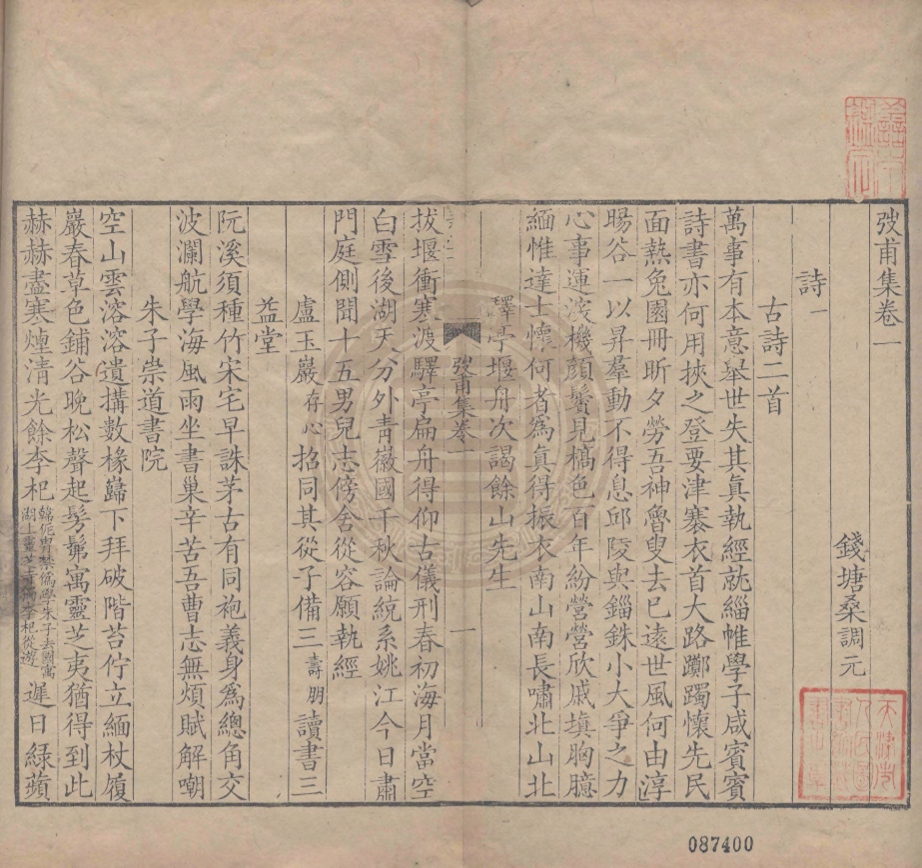 弢甫集卷一
錢塘桑調元
詩一
古詩二首
萬事有本意舉世失其真執經就緇帷學子咸賓賓
詩書亦何用挾之登要津褰衣首大路躑躅懷先民
面熱兔園冊昕夕勞吾神魯叟去已遠世風何由淳
暘谷一以昇羣動不得息邱陵與錙銖小大爭之力
心事運深機顏鬢見槁色百年紛營營欣戚填胸臆
緬惟達士懷何者為真得振衣南山南長嘯北山北
驛亭堰舟次謁餘山先生
弢甫集卷一
一
拔堰衝寒渡驛亭扁舟得仰古儀刑春初海月當空
白雪後湖天分外青徽國千秋論統系姚江今日肅
門庭側聞十五男兒志傍舍從容願執經
盧玉巖存心招同其從子備三壽朋讀書三
益堂
阮溪須種竹宋宅早誅茅古有同袍義身為總角交
波瀾航學海風雨坐書巢辛苦吾曹志無煩賦解嘲
朱子崇道書院
空山雲溶溶遺搆數椽巋下拜破階苔佇立緬杖履
巖春草色鋪谷晚松聲起髣髴寓靈芝夷猶得到此
赫赫盡寒煙清光餘李杞韓侂胄禁偽學朱子去國寓湖上靈芝寺獨李杞從遊遲日綠蘋
087400